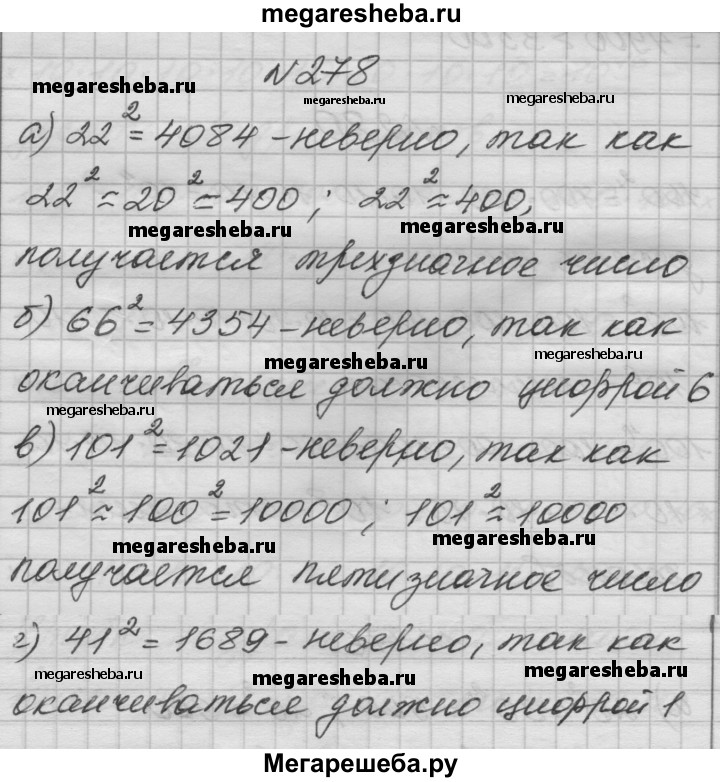 megaresheba.ru
N278
megaresheba.ru megaresheba.ru
а) 22² = 4084 - неверно, так как
22² ≈ 20² = 400 ; 22² ≈ 400,
megaresheba.ru megaresheba.ru
получается трехзначное число
б) 66² = 4354 - неверно, так как
megaresheba.ru megaresheba.ru
оканчиваться должно цифрой 6
megaresheba.ru
в) 101² = 1021 - неверно, так как
101² ≈ 100² = 10000 ; 101² ≈ 10000
megaresheba.ru megaresheba.ru
получается пятизначное число
г) 41² = 1689 - неверно, так как
megaresheba.ru megaresheba.ru megaresheba.ru
оканчиваться должно цифрой 1
Мегарешеба.ру